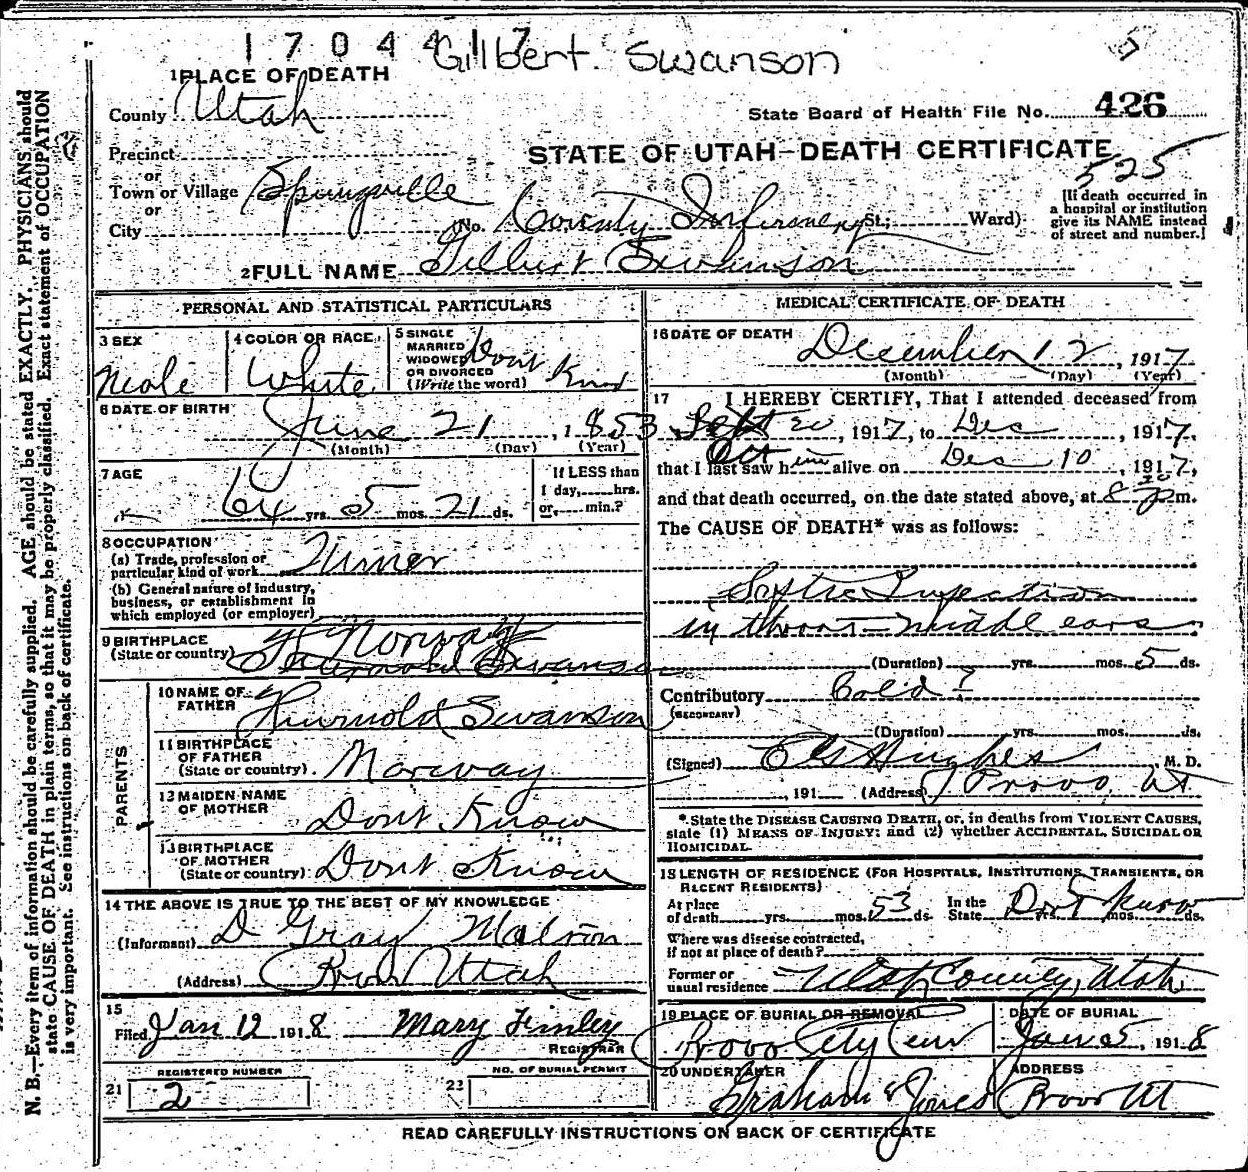 1704417
Gilbert Swanson
5
1 PLACE OF DEATH
County Utah
State Board of Health File No. 426
Precinct
STATE OF UTAH—DEATH CERTIFICATE
525
or
Town or Village Springville
or
City
No. County Infirmery St.; Ward)
[If death occurred in
a hospital or institution
give its NAME instead
of street and number.]
2 FULL NAME Gilbert Swanson
PERSONAL AND STATISTICAL PARTICULARS
3 SEX
Male
4 COLOR OR RACE
White
5 SINGLE
MARRIED
WIDOWED
OR DIVORCED
(Write the word)
Dont Know
6 DATE OF BIRTH
June 21, 1853
(Month) (Day) (Year)
7 AGE
64 yrs. 5 mos. 21 ds.
If LESS than
1 day, hrs.
or, min.?
8 OCCUPATION
(a) Trade, profession or
particular kind of work
(b) General nature of industry,
business, or establishment in
which employed (or employer)
9 BIRTHPLACE
(State or country)
Norway
Swanson
PARENTS
10 NAME OF
FATHER
Swanson
11 BIRTHPLACE
OF FATHER
(State or country)
Norway
12 MAIDEN NAME
OF MOTHER
Dont Know
13 BIRTHPLACE
OF MOTHER
(State or country)
Dont Know
14 THE ABOVE IS TRUE TO THE BEST OF MY KNOWLEDGE
(Informant) D Gray
(Address) Utah
15
Filed Jan 12 1918 Mary Finley
REGISTRAR
REGISTERED NUMBER
21 2
NO. OF BURIAL PERMIT
22
MEDICAL CERTIFICATE OF DEATH
16 DATE OF DEATH
December 12, 1917
(Month) (Day) (Year)
17 I HEREBY CERTIFY, That I attended deceased from
Sept 20, 1917, to Dec, 1917,
Oct
that I last saw him alive on Dec 10, 1917,
and that death occurred, on the date stated above, at 8 20 p m.
The CAUSE OF DEATH* was as follows:
Septic Infection
in throat—middle ears
(Duration) yrs. mos. 5 ds.
Contributory Cold?
(SECONDARY)
(Duration) yrs. mos. ds.
(Signed) Hughes, M. D.
, 191 (Address) Provo, Ut
*State the DISEASE CAUSING DEATH, or, in deaths from VIOLENT CAUSES,
state (1) MEANS OF INJURY; and (2) whether ACCIDENTAL, SUICIDAL OR
HOMICIDAL.
18 LENGTH OF RESIDENCE (FOR HOSPITALS, INSTITUTIONS, TRANSIENTS, OR
RECENT RESIDENTS)
At place
of death yrs. mos. 53 ds.
In the
State Dont Know yrs. mos. ds.
Where was disease contracted,
if not at place of death?
Former or
usual residence Utah County, Utah
19 PLACE OF BURIAL OR REMOVAL
Provo City Cem
DATE OF BURIAL
Jan 5, 1918
20 UNDERTAKER
Graham & Jones
ADDRESS
Provo Ut
READ CAREFULLY INSTRUCTIONS ON BACK OF CERTIFICATE
N. B.—Every item of information should be carefully supplied. AGE should be stated EXACTLY. PHYSICIANS should
state CAUSE OF DEATH in plain terms, so that it may be properly classified. Exact statement of OCCUPATION
is very important. See instructions on back of certificate.